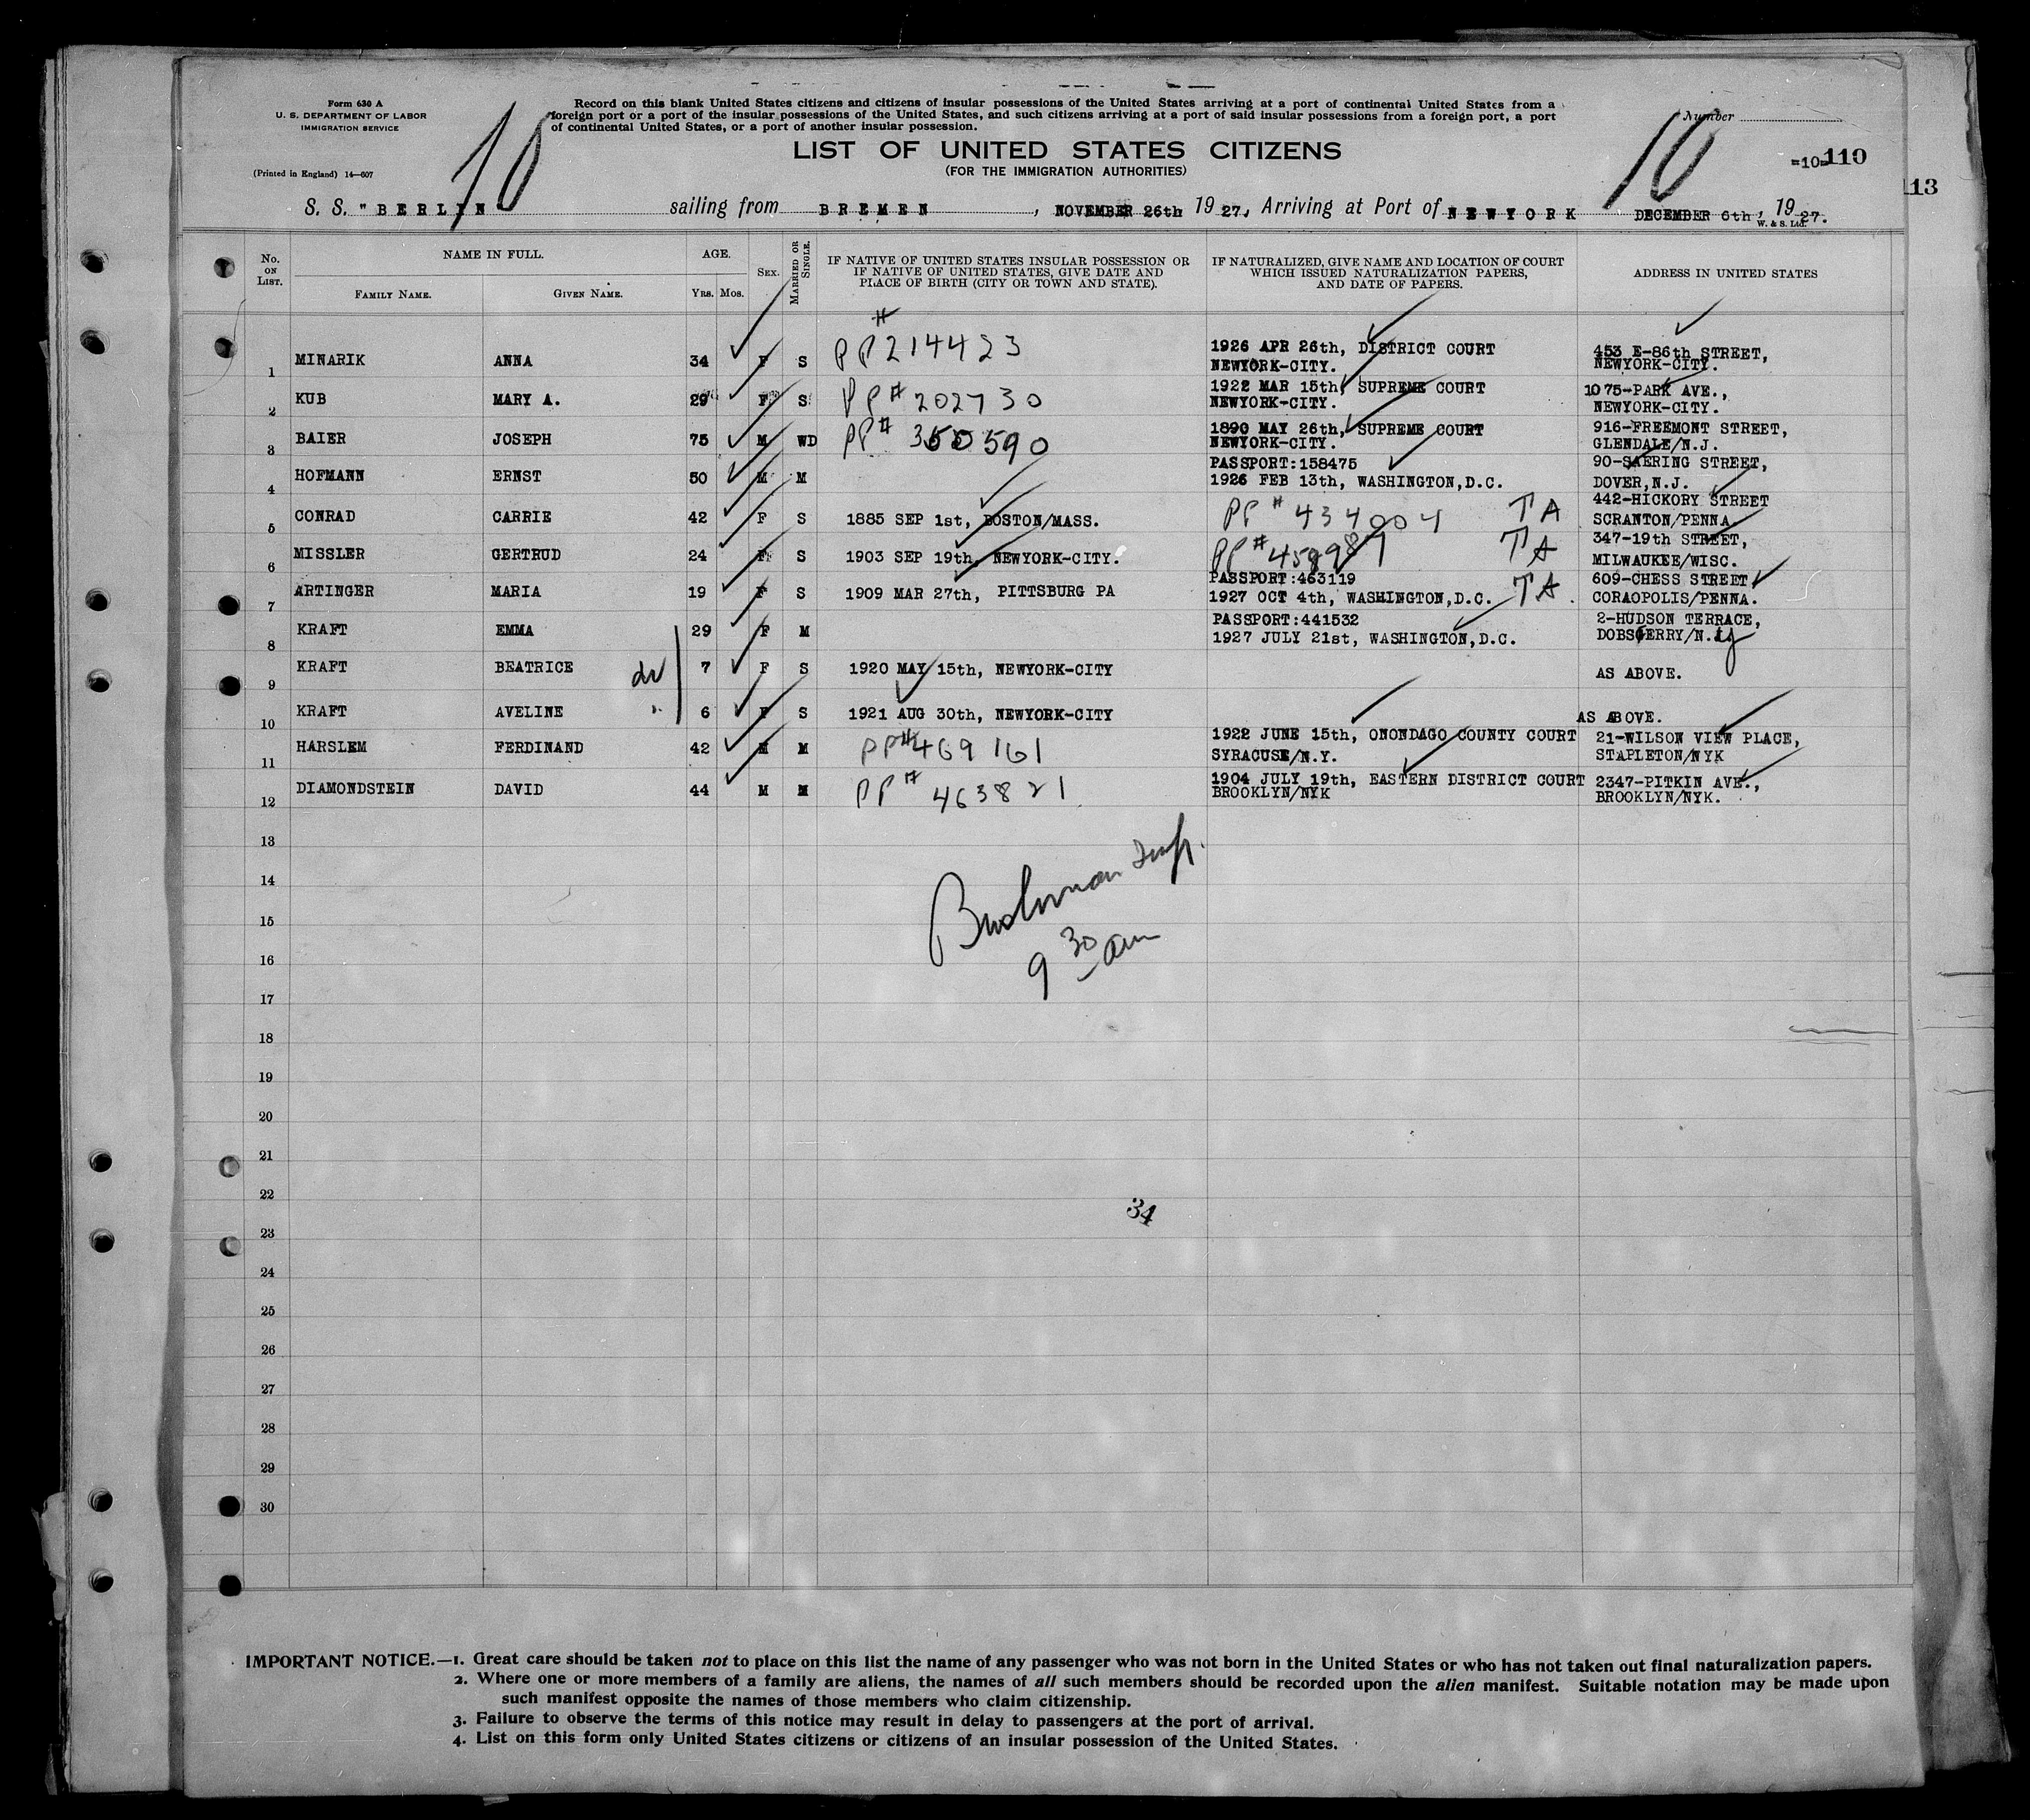 Form 630 A
U. S. DEPARTMENT OF LABOR
IMMIGRATION SERVICE
(Printed in England) 14—607
10
Record on this blank United States citizens and citizens of insular possessions of the United States arriving at a port of continental United States from a
foreign port or a port of the insular possessions of the United States, and such citizens arriving at a port of said insular possessions from a foreign port, a port
of continental United States, or a port of another insular possession.
LIST OF UNITED STATES CITIZENS
(FOR THE IMMIGRATION AUTHORITIES)
Number
10
=10=110
113
S. S. "BERLIN" sailing from BREMEN, NOVEMBER 26th 1927, Arriving at Port of NEWYORK DECEMBER 6th, 1927.
W. & S. Ltd.
No. ON LIST. NAME IN FULL. FAMILY NAME. GIVEN NAME. AGE. YRS. MOS. SEX. MARRIED OR SINGLE.
IF NATIVE OF UNITED STATES INSULAR POSSESSION OR
IF NATIVE OF UNITED STATES, GIVE DATE AND
PLACE OF BIRTH (CITY OR TOWN AND STATE).
IF NATURALIZED, GIVE NAME AND LOCATION OF COURT
WHICH ISSUED NATURALIZATION PAPERS,
AND DATE OF PAPERS.
ADDRESS IN UNITED STATES
1 MINARIK ANNA 34 F S PP# 214423 1926 APR 26th, DISTRICT COURT NEWYORK-CITY. 453 E-86th STREET, NEWYORK-CITY.
2 KUB MARY A. 29 F S PP# 202730 1922 MAR 15th, SUPREME COURT NEWYORK-CITY. 1075-PARK AVE., NEWYORK-CITY.
3 BAIER JOSEPH 75 M WD PP# 350590 1890 MAY 26th, SUPREME COURT NEWYORK-CITY. 916-FREEMONT STREET, GLENDALE/N.J.
4 HOFMANN ERNST 50 M M PASSPORT:158475 1926 FEB 13th, WASHINGTON,D.C. 90-SAERING STREET, DOVER,N.J.
5 CONRAD CARRIE 42 F S 1885 SEP 1st, BOSTON/MASS. PP# 434004 TA 442-HICKORY STREET SCRANTON/PENNA
6 MISSLER GERTRUD 24 F S 1903 SEP 19th, NEWYORK-CITY. PP# 459987 TA 347-19th STREET, MILWAUKEE/WISC.
7 ARTINGER MARIA 19 F S 1909 MAR 27th, PITTSBURG PA PASSPORT:463119 1927 OCT 4th, WASHINGTON,D.C. TA. 609-CHESS STREET CORAOPOLIS/PENNA.
8 KRAFT EMMA 29 F M PASSPORT:441532 1927 JULY 21st, WASHINGTON,D.C. 2-HUDSON TERRACE, DOBSFERRY/N.Y
9 KRAFT BEATRICE 7 F S 1920 MAY 15th, NEWYORK-CITY AS ABOVE.
10 KRAFT AVELINE " 6 F S 1921 AUG 30th, NEWYORK-CITY AS ABOVE.
11 HARSLEM FERDINAND 42 M M PP# 469161 1922 JUNE 15th, ONONDAGO COUNTY COURT SYRACUSE/N.Y. 21-WILSON VIEW PLACE, STAPLETON/NYK
12 DIAMONDSTEIN DAVID 44 M M PP# 463821 1904 JULY 19th, EASTERN DISTRICT COURT BROOKLYN/NYK 2347-PITKIN AVE., BROOKLYN/NYK.
13
14
Bushman Insp.
15
16
9 30 am
17
18
19
20
21
22
34
23
24
25
26
27
28
29
30
IMPORTANT NOTICE.—1. Great care should be taken not to place on this list the name of any passenger who was not born in the United States or who has not taken out final naturalization papers.
2. Where one or more members of a family are aliens, the names of all such members should be recorded upon the alien manifest. Suitable notation may be made upon
such manifest opposite the names of those members who claim citizenship.
3. Failure to observe the terms of this notice may result in delay to passengers at the port of arrival.
4. List on this form only United States citizens or citizens of an insular possession of the United States.